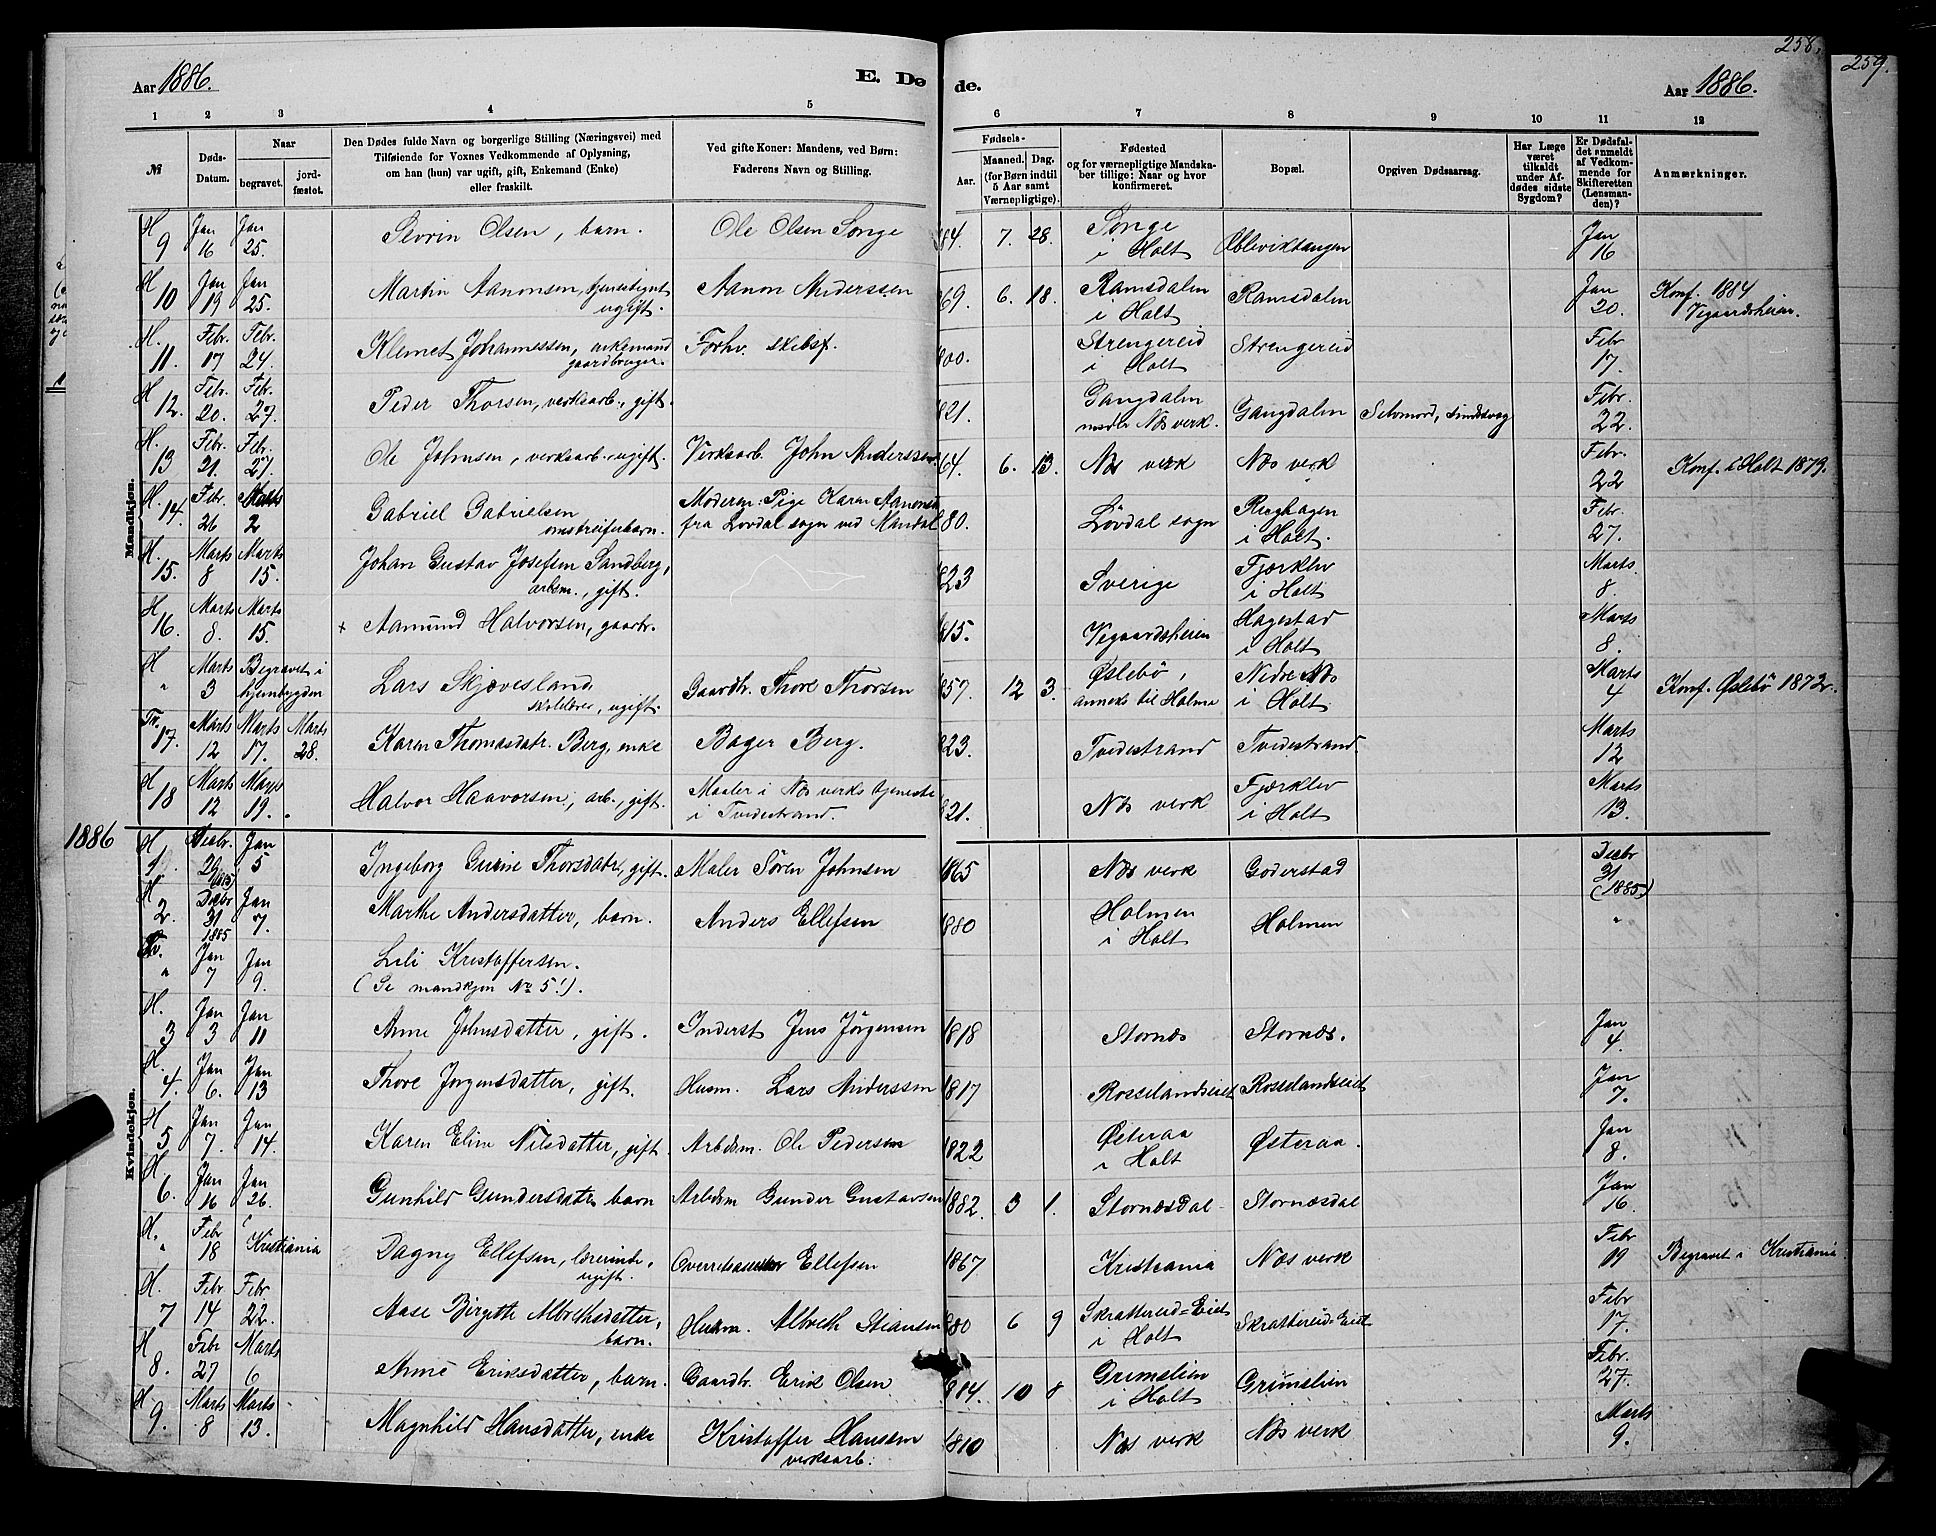 258.
259.
Aar 1886.
E. Dø de.
Aar 1886.
1 2 3 4 5 6 7 8 9 10 11 12
№
Døds-Datum.
Naar
begravet.
jord-fæstet.
Den Dødes fulde Navn og borgerlige Stilling (Næringsvei) med
Tilføiende for Voxnes Vedkommende af Oplysning,
om han (hun) var ugift, gift, Enkemand (Enke)
eller fraskilt.
Ved gifte Koner: Mandens, ved Børn:
Faderens Navn og Stilling.
Fødsels-
Aar.
Maaned. Dag.
(for Børn indtil
5 Aar samt
Værnepligtige).
Fødested
og for værnepligtige Mandska-
ber tillige: Naar og hvor
konfirmeret.
Bopæl.
Opgiven Dødsaarsag.
Har Læge
været
tilkaldt
under Af-
dødes sidste
Sygdom?
Er Dødsfal-
det anmeldt
af Vedkom-
mende for
Skifteretten
(Lensman-
den)?
Anmærkninger.
Mandkjøn.
H 9 Jan 16 Jan 25. Sevrin Olsen, barn. Ole Olsen Songe 84. 7. 28. Songe i Holt Øbleviktangen Jan 16
H 10 Jan 19 Jan 25. Martin Aanonsen, tjenestegut ugift. Aanon Anderssen 69. 6. 18. Ramsdalen i Holt Ramsdalen Jan 20. Konf. 1884 Vegaardsheien.
H. 11. Febr. 17 Febr. 24. Klemet Johannessen, enkemand gaardbruger Forhv. skibsf. 800. Strengereid i Holt Strengereid Febr 17.
H 12. Febr. 20. Febr. 27. Peder Thorsen, verksarb., gift. 821. Gangdalen nedre Næs verk. Gangdalen Selvmord, sindssvag Febr. 22.
H. 13 Febr. 21. Febr. 27. Ole Johnsen, verksarb., ugift. Verksarb. John Anderssen 64. 6. 13. Næs verk Næs verk Febr. 22 Konf. i Holt 1879.
H. 14. Febr. 26 Marts 2 Gabriel Gabrielsen omstreiferbarn. Moderen: Pige Karen Aanonsd. fra Løvdal sogn ved Mandal 80. Løvdal sogn Ringhagen i Holt. Febr. 27.
H. 15. Marts 8 Marts 15. Johan Gustav Josefsen Sandberg, arbsm., gift. 823 Sverige Fjærklev i Holt Marts. 8.
H 16. Marts 8. Marts 15. + Aamund Halvorsen, gaarbr. 815. Vegaardsheien Hagestad i Holt Marts 8.
H " Marts 3 Begravet i hjembygden Lars Skjævesland skolelærer, ugift. Gaardbr. Thore Thorsen 857. 12 3. Øslebø, anneks til Holme Nedre Næs i Holt Marts 4 Konf. Øslebø 1872.
Tv. 17. Marts 12 Marts 17. Marts 28. Karen Thomasdatr. Berg, enke Bager Berg. 823. Tvedestrand Tvedestrand Marts 12
H 18 Marts 12 Marts 19. Halvor Haavorsen, arb., gift. Maaler i Næs verks tjeneste i Tvedestrand. 821. Næs verk Fjærklev i Holt Marts 13.
1886
Kvindekjøn.
H. 1. Decbr. 29 1885 Jan 5 Ingeborg Gurine Thorsdatter, gift. Maler Søren Johnsen 1865 Næs verk Goderstad Decbr 31 (1885)
H 2. Decbr 31 1885 Jan 7. Marthe Andersdatter, barn. Anders Ellefsen 1880 Holmen i Holt Holmen "
Tv. " Jan 7 Jan 9. Lili Kristoffersen. (Se mandkjøn № 5!).
H. 3 Jan 3 Jan 11 Anne Johnsdatter, gift. Inderst Jens Jørgensen 1818 Stornæs Stornæs. Jan 4.
H. 4. Jan 6. Jan 13 Thore Jørgensdatter, gift. Husm. Lars Anderssen 1817 Rosselandseiet Rosselandseiet Jan 7.
H 5 Jan 7. Jan 14. Karen Eline Nilsdatter, gift. Arbdsm. Ole Pedersen 1822 Østeraa i Holt Østeraa. Jan 8.
H. 6. Jan 16 Jan 26. Gunhild Gundersdatter, barn Arbdsm Gunder Gustavsen 1882. 3 1. Stornæsdal Stornæsdal Jan 16.
H. " Febr 18 i Kristiania Dagny Ellefsen, lærerinde, ugift. Overretssagfører Ellefsen 1867 Kristiania Næs verk Febr 19 Begravet i Kristiania
H. 7 Febr 14 Febr 22. Aase Birgitte Albrethsdatter, barn. Husm. Albreth Stiansen 880 6 9 Skrattereid=Eiet i Holt Skrattereid=Eiet Febr 17.
H 8. Febr 27 Marts 6 Anne Eriksdatter, barn. Gaardbr. Erik Olsen 884. 10 8 Grimslien i Holt Grimslien Febr. 27.
H 9. Marts 8 Marts 13. Magnhild Hansdatter, enke Kristoffer Hanssen verksarb. 1810 Næs verk Næs verk Marts 9.